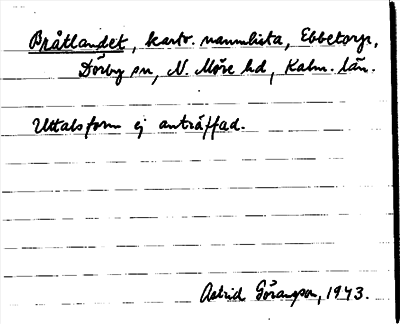 Bråtlandet, kartv. namnlista, Ebbetorp,
Dörby sn, N. Möre hd, Kalm. län.
Uttalsform ej anträffad.
Astrid Göranson, 1943.